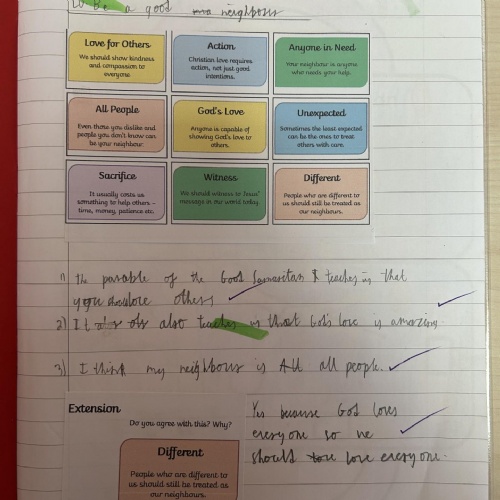 to be a good neighbour
Love for Others
We should show kindness
and compassion to
everyone
Action
Christian love requires
action, not just good
intentions.
Anyone in Need
Your neighbour is anyone
who needs your help.
All People
Even those you dislike and
people you don't know can
be your neighbour.
God's Love
Anyone is capable of
showing God's love to
others.
Unexpected
Sometimes the least expected
can be the ones to treat
others with care.
Sacrifice
It usually costs us
something to help others –
time, money, patience etc.
Witness
We should witness to Jesus'
message in our world today.
Different
People who are different to
us should still be treated as
our neighbours.
1) the parable of the Good Samaritan teaches us that
you should love others
2) It also teaches us that God's love is amazing.
3) I think my neighbour is All all people.
Extension
Do you agree with this? Why?
Different
People who are different to
us should still be treated as
our neighbours.
Yes because God loves
everyone so we
should love everyone.